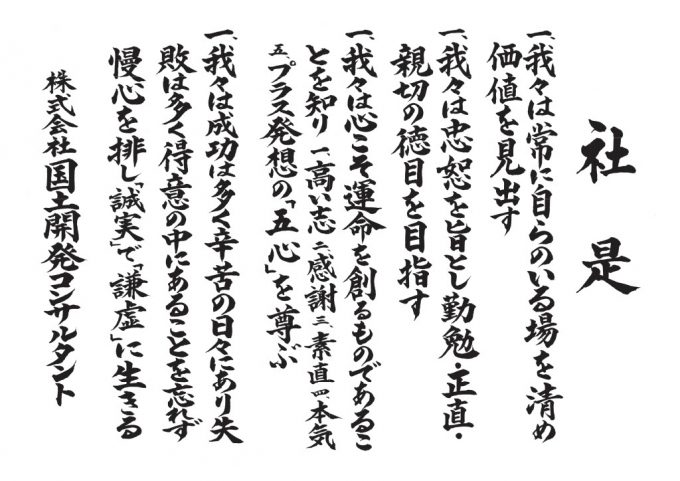 社是
一、我々は常に自らのいる場を清め
価値を見出す
一、我々は忠恕を旨とし勤勉・正直・
親切の徳目を目指す
一、我々は心こそ運命を創るものであるこ
とを知り 一、高い志 二、感謝 三、素直 四、本気
五、プラス発想の「五心」を尊ぶ
一、我々は成功は多く辛苦の日々にあり失
敗は多く得意の中にあることを忘れず
慢心を排し「誠実」で「謙虚」に生きる
株式会社国土開発コンサルタント